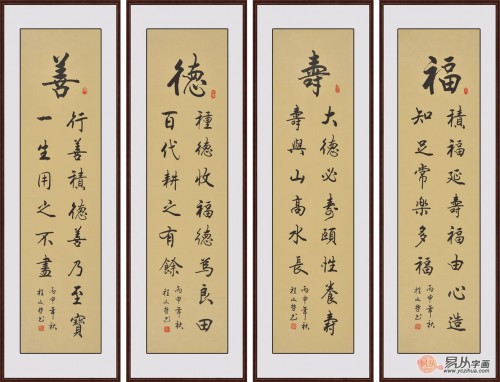 福
積福延壽福由心造
知足常樂多福
丙申年秋
壽
大德必壽頤性養壽
壽與山高水長
丙申年秋
德
種德收福德為良田
百代耕之有餘
丙申年秋
善
行善積德善乃至寶
一生用之不盡
丙申年秋
易从字画
www.yczihua.com